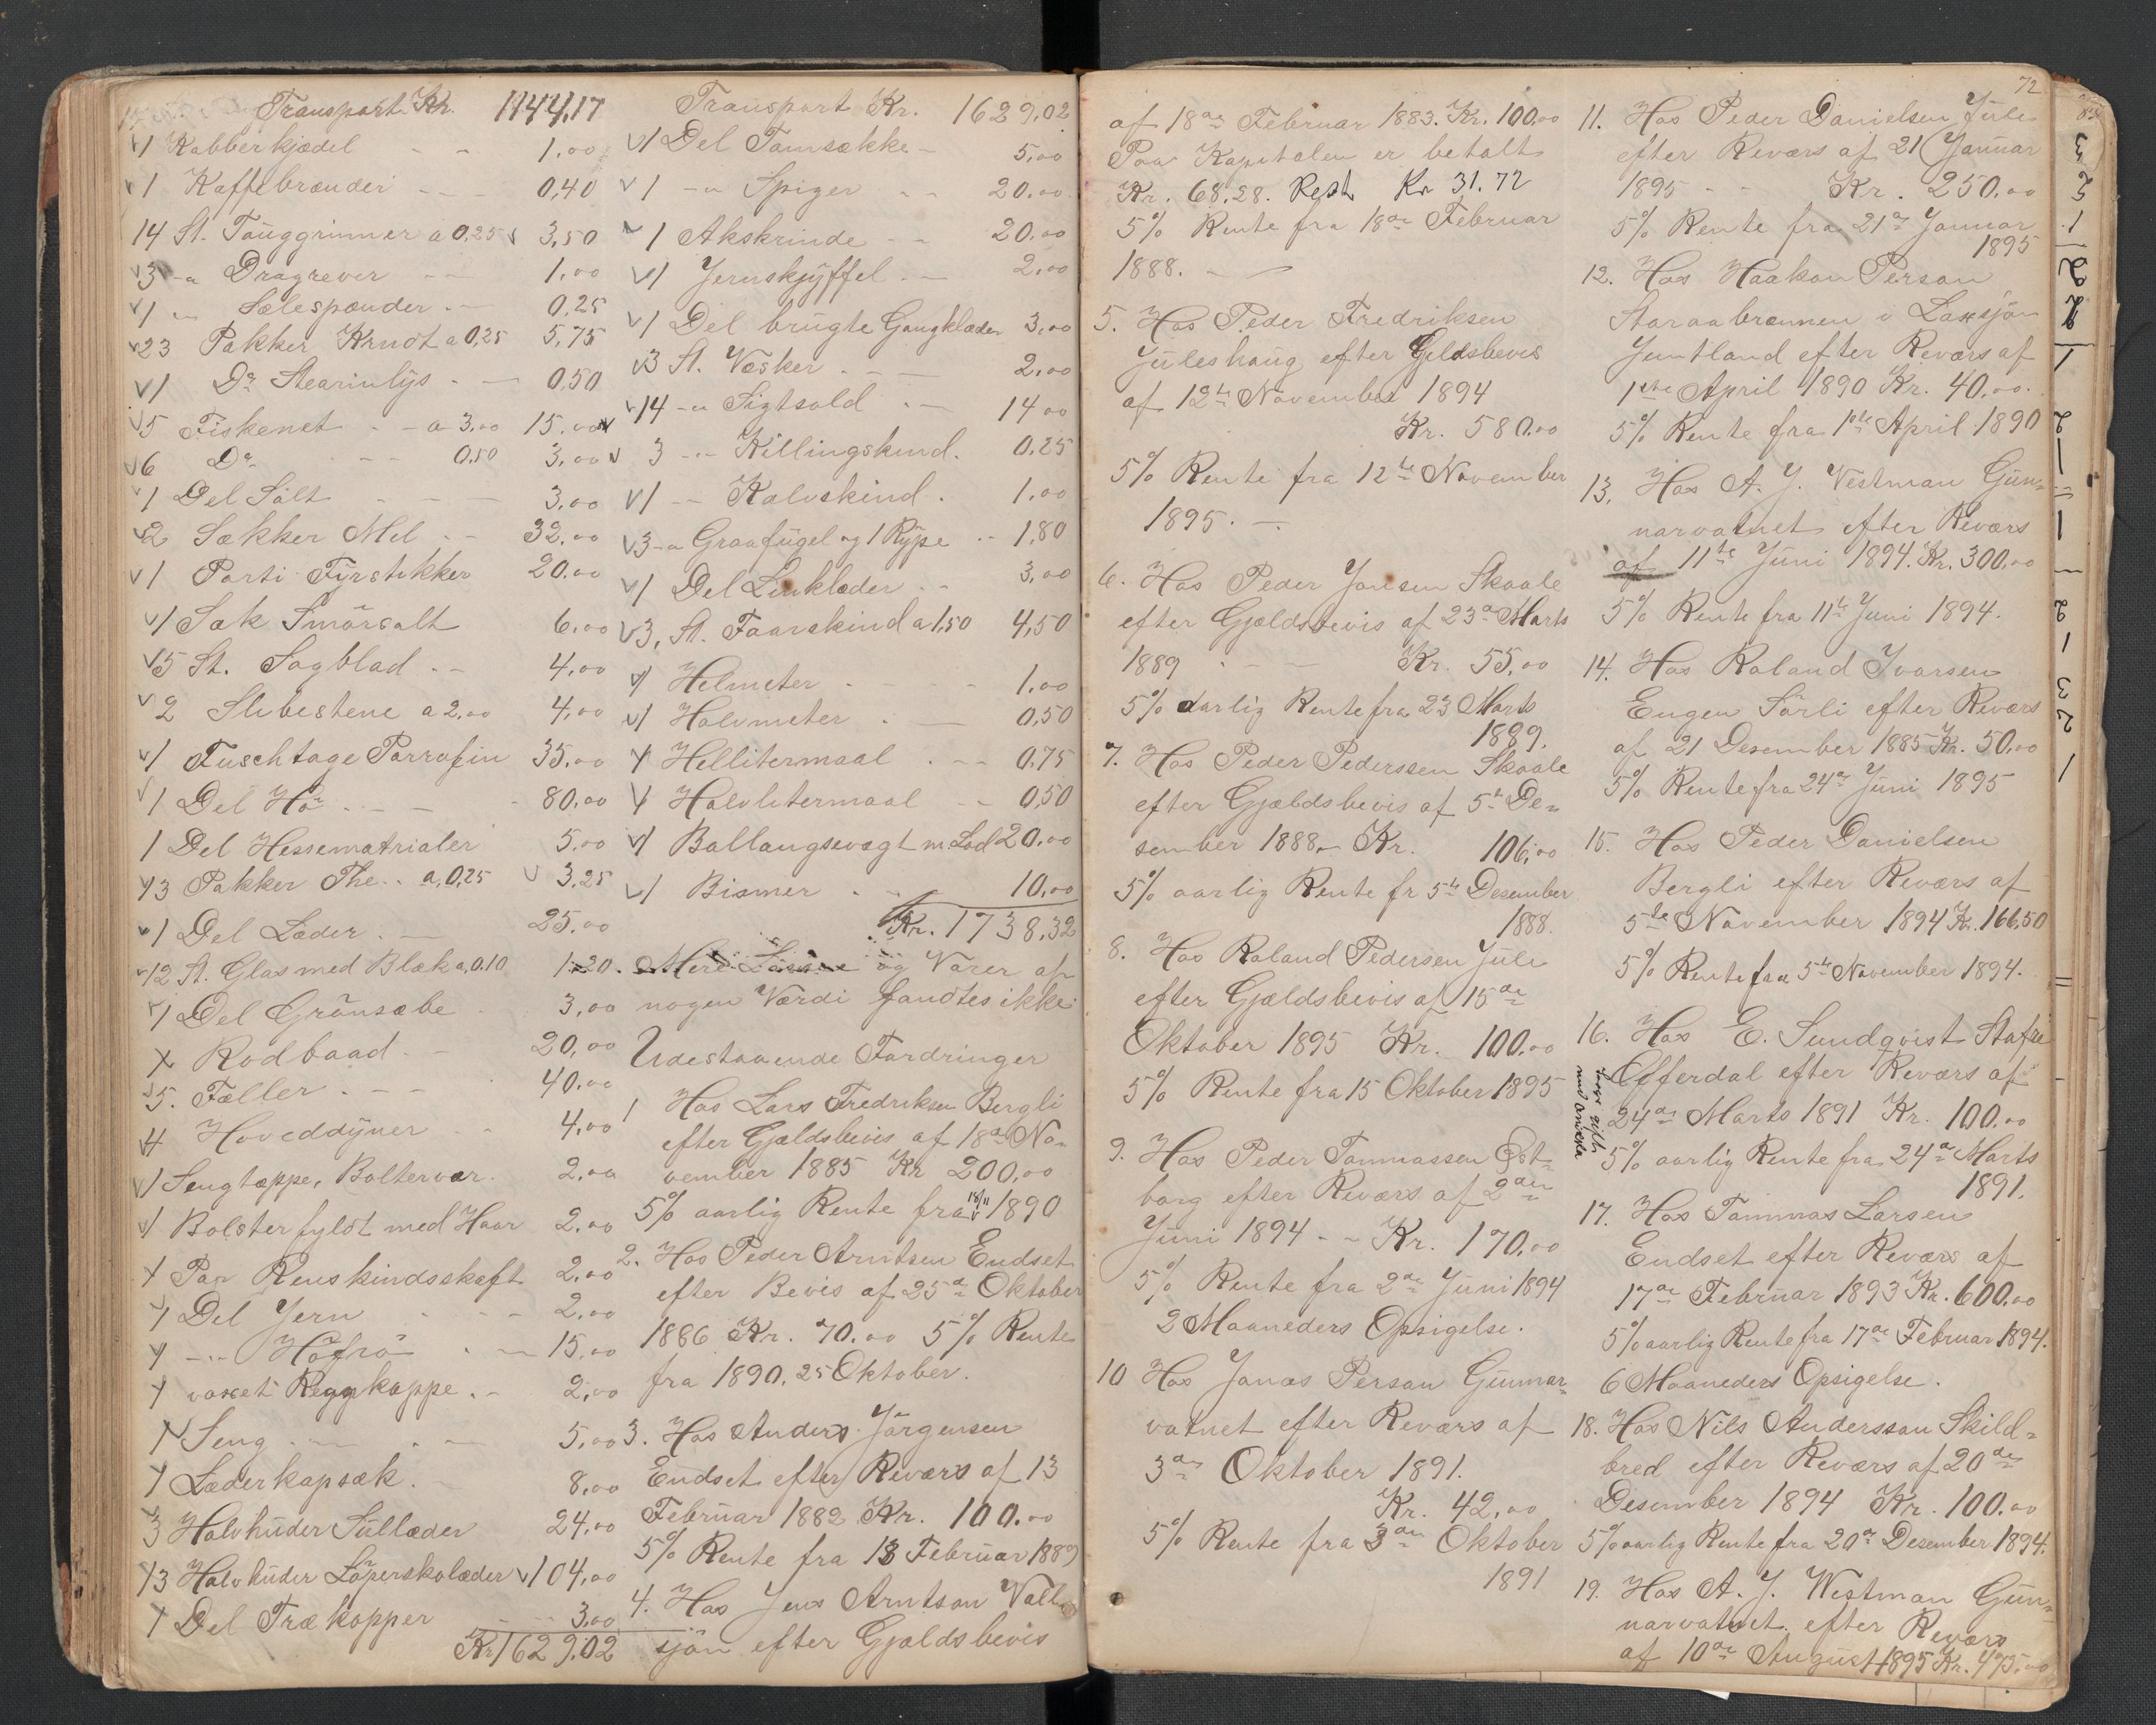 Transport Kr. 1144,17
1 Kabberkjædel - - 1.00
1 Kaffebrænder - - 0,40
14 St. Tauggrimmer a 0,25 3,50
3 -"- Dragrever - - 1,00
1 " Sælespænder - 0,25
23 Pakker Krudt a 0,25 5,75
1 Do Stearinlys - - 0,50
5 Fiskenet - - a 3.00 15.00
6 Do - - 0.50 3,00
1 Del Salt - - - 3,00
2 Sækker Mel - - 32,00
1 Parti Fyrstikker 20.00
1 Sæk Smörsalt 6.00
5 St. Sagblad - - 4.00
2 Slibestene a 2,00 4,00
1 Fuschtage Parrafin 35.00
1 Del Hö - - - 80,00
1 Del Hessematrialer 5.00
13 Pakker The - a, 0,25 3,25
1 Del Læder - - 25.00
12 St. Glas med Blæk a, 0.10 1.20
1 Del Grönsæbe 3,00
1 Rodbaad - - 20,00
5. Fæller - - - 40.00
4 Hoveddyner - - 4,00
1 Sengtæppe, Boltervær. 2.00
1 Bolster fyldt med Haar 2.00
1 Par Renskindsskaft 2,00
1 Del Jern - - - 2,00
1 -"- Höfrö - - 15.00
1 voxet Regnkappe - - 2,00
1 Seng - - - 5,00
1 Læderkapsæk. - 8,00
3 Halvhuder Sullæder 24,00
13 Halvhuder Löperskolæder 104,00
1 Del Trækopper - - 3,00
Kr 1629.02
Transport Kr. 1629,02
1 Del Tomsække - 5.00
1 -"- Spiger - - 20.00
1 Akskrinde - - 20.00
1 Jernskjyffel - - 2,00
1 Del brugte Gangklæder 3,00
3 St. Væsker - - - 2,00
14 -"- Sigtsold - - 14 00
3 -"- Killingskind. 0.25
1 -"- Kalvskind. 1.00
3 -"- Graafugel og 1 Rype - - 1,80
1 Del Linklæder - - 3,00
3, St. Faarskind a 1,50 4,50
1 Helmeter - - - 1.00
1 Halvmeter - - 0,50
1 Hellitermaal - - - 0.75
1 Halvlitermaal - - 0,50
1 Ballangsvægt m. Lod 20,00
1 Bismer - - 10.00
Kr. 1738,32
Mere Lösöre og Varer af
nogen Værdi fandtes ikke.
Udestaaende Fordringer
1 Hos Lars Fredriksen Bergli
efter Gjeldsbevis af 18de No-
vember 1885 Kr 200,00
5% aarlig Rente fra 18/11 1890
2. Hos Peder Arntsen Endset
efter Bevis af 25de Oktober
1886 Kr. 70.00 5% Rente
fra 1890. 25 Oktober.
3. Hos Anders Jörgensen
Endset efter Reværs af 13
Februar 1882 Kr. 100.00
5% Rente fra 13 Februar 1889
4. Hos Jens Arntson Vall-
sjön efter Gjældsbevis
72
af 18de Februar 1883. Kr. 100,00
Paa Kapitalen er betalt
Kr. 68.28. Rest Kr 31.72
5% Rente fra 18de Februar
1888. -
5. Hos Peder Fredriksen
Juleshaug efter Gjeldsbevis
af 12te November 1894
Kr. 580.00
5% Rente fra 12te November
1895. -
6. Hos Peder Jonsen Skaale
efter Gjældsbevis af 23de Marts
1889 - - - Kr. 55,00
5% aarlig Rente fra 23 Marts
1889.
7. Hos Peder Pederssen Skaale
efter Gjældsbevis af 5te De-
sember 1888 Kr. 106,00
5% aarlig Rente fr 5te Desember
1888.
8. Hos Roland Pedersen Jule
efter Gjældsbevis af 15de
Oktober 1895 Kr. 100.00
5% Rente fra 15 Oktober 1895
9. Hos Peder Tommassen Öst-
borg efter Reværs af 2den
Juni 1894 - - Kr. 170,00
5% Rente fra 2de Juni 1894
2 Maaneders Opsigelse.
10 Hos Jonas Person Gunnar-
vatnet efter Reværs af
3de Oktober 1891.
Kr. 42,00
5% Rente fra 3den Oktober
1891
11. Hos Peder Danielsen Jule
efter Reværs af 21 Januar
1895 - - Kr. 250,00
5% Rente fra 21de Januar
1895
12. Hos Haakon Person
Storaabrennen i Laxsjön
Jemtland efter Reværs af
1ste April 1890 Kr. 40,00.
5% Rente fra 1ste April 1890
13. Hos A. J. Vestman Gun-
narvatnet efter Reværs
af 11te Juni 1894. Kr. 300,00
5% Rente fra 11te Juni 1894.
14. Hos Roland Ivarsen
Eugen Sörli efter Reværs
af 21 Desember 1885 Kr. 50,00
5% Rente fra 24de Juni 1895
15. Hos Peder Danielsen
Bergli efter Reværs af
5te November 1894 Kr. 166,50
5% Rente fra 5te November 1894.
16. Hos E. Sundqvist Stafre
Offerdal efter Reværs af
24de Marts 1891 Kr. 100.00
5% aarlig Rente fra 24de Marts
1891.
17. Hos Tommas Larsen
Endset efter Reværs af
17de Februar 1893 Kr. 600,00
5% aarlig Rente fra 17de Februar 1894.
6 Maaneders Opsigelse.
18. Hos Nils Andersson Skild-
bred efter Reværs af 20de
Desember 1894 Kr. 100.00
5% aarlig Rente fra 20de Desember 1894.
19. Hos A. J. Westman Gun-
narvatnet efter Reværs
af 10de August 1895 Kr. 475.00